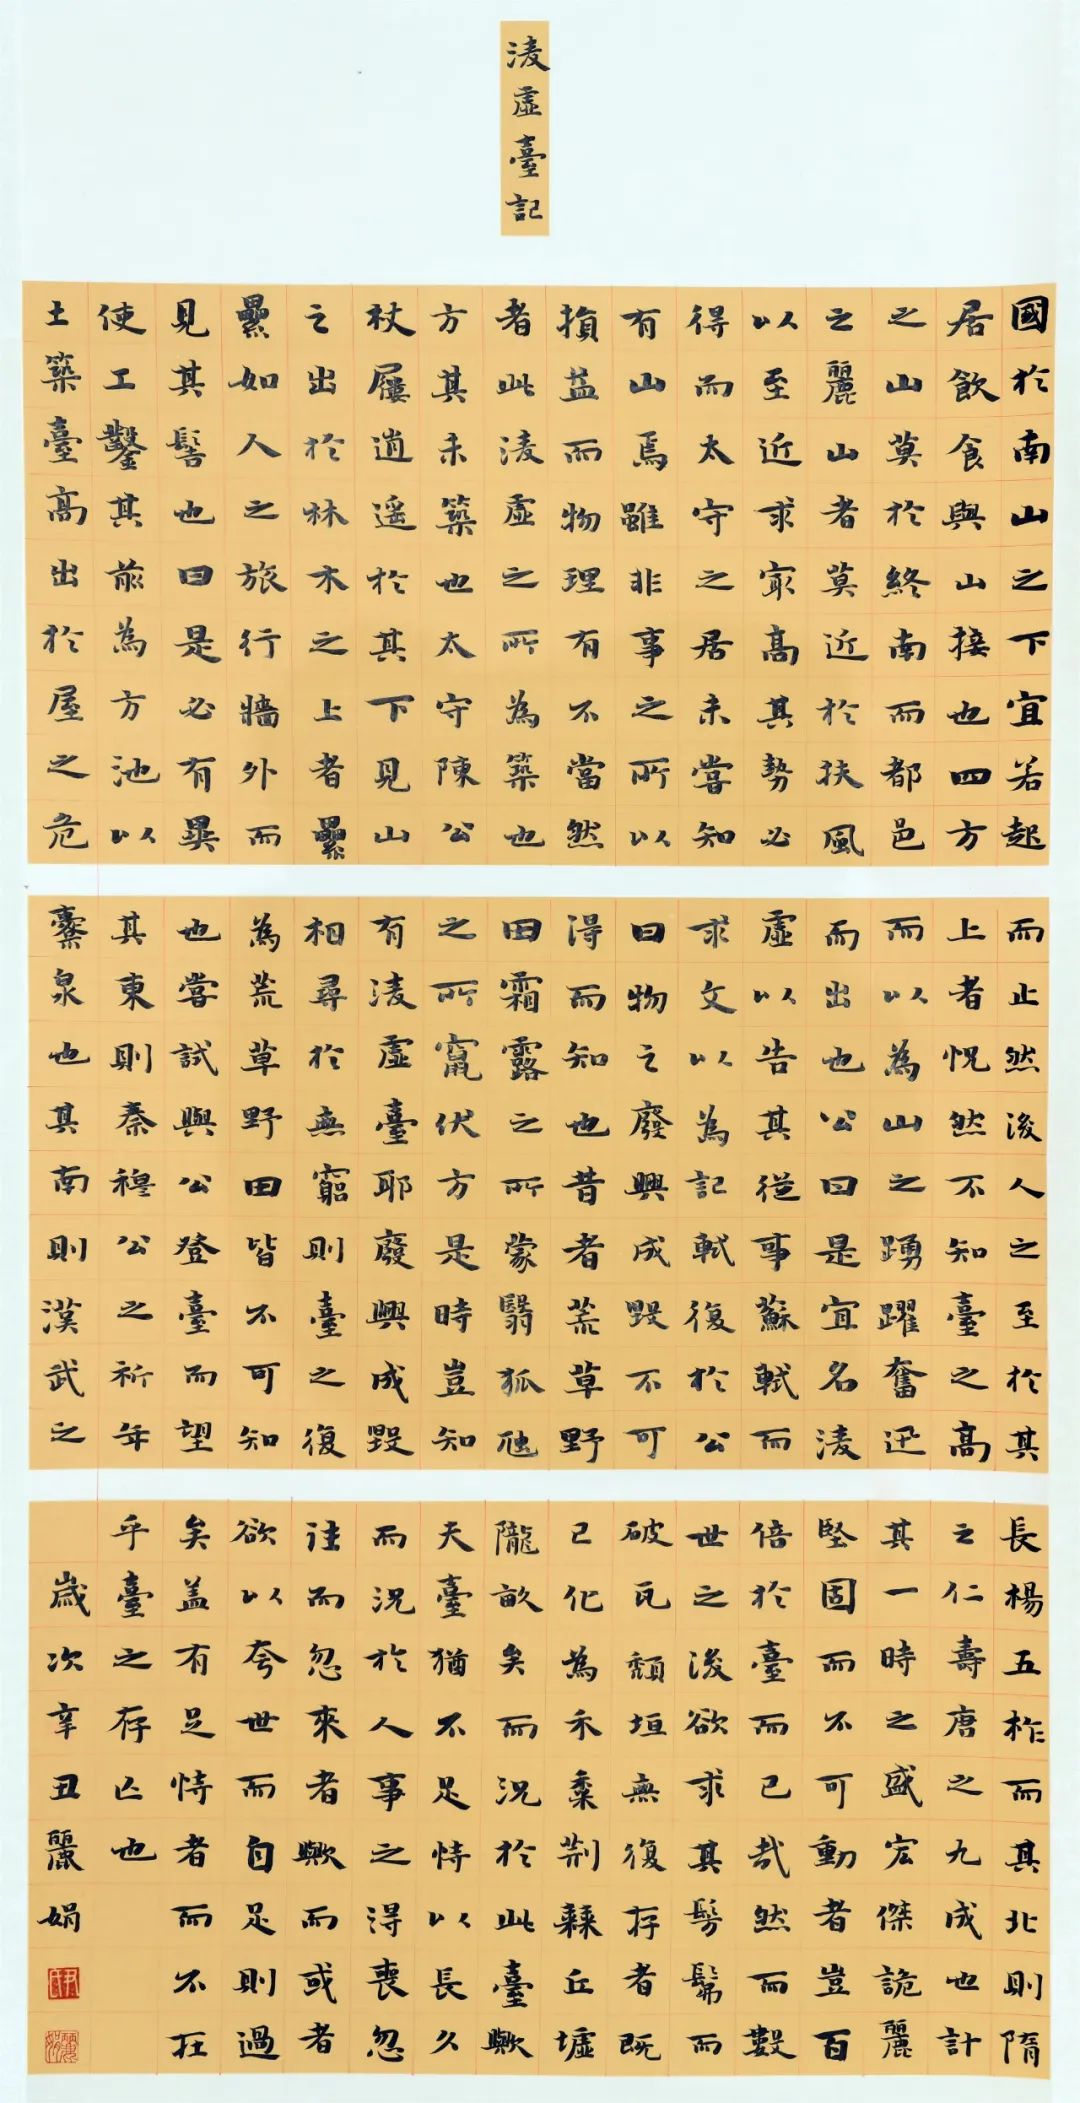 淩虛臺記
國於南山之下宜若起
居飲食與山接也四方
之山莫於終南而都邑
之麗山者莫近於扶風
以至近求冣高其勢必
得而太守之居未嘗知
有山焉雖非事之所以
損益而物理有不當然
者此淩虛之所為築也
方其未築也太守陳公
杖屨逍遙於其下見山
之出於林木之上者纍
纍如人之旅行牆外而
見其髻也曰是必有異
使工鑿其前為方池以
土築臺高出於屋之危
而止然後人之至於其
上者怳然不知臺之高
而以為山之踴躍奮迅
而出也公曰是宜名淩
虛以告其從事蘇軾而
求文以為記軾復於公
曰物之廢興成毀不可
得而知也昔者荒草野
田霜露之所蒙翳狐虺
之所竄伏方是時豈知
有淩虛臺耶廢興成毀
相尋於無窮則臺之復
為荒草野田皆不可知
也嘗試與公登臺而望
其東則秦穆公之祈年
橐泉也其南則漢武之
長楊五柞而其北則隋
之仁壽唐之九成也計
其一時之盛宏傑詭麗
堅固而不可動者豈百
倍於臺而已哉然而數
世之後欲求其髣髴而
破瓦頹垣無復存者既
已化為禾黍荊棘丘墟
隴畝矣而況於此臺歟
夫臺猶不足恃以長久
而況於人事之得喪忽
往而忽來者歟而或者
欲以夸世而自足則過
矣蓋有足恃者而不在
乎臺之存亡也
歲次辛丑麗娟
尹氏
麗娟